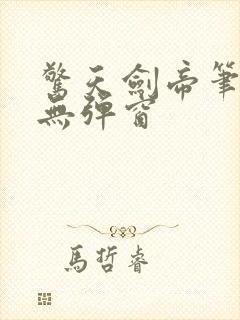 驚天劍帝筆
無彈窗
馬哲睿